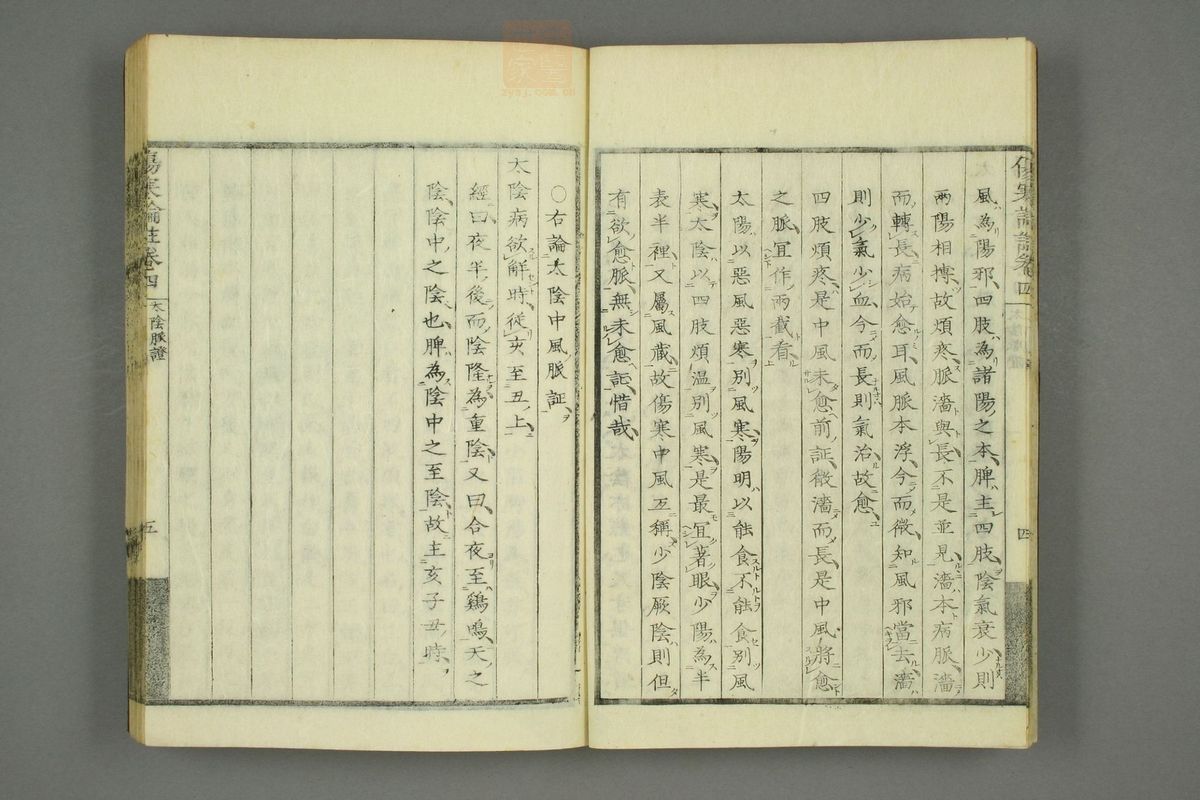 風為陽邪四肢為諸陽之本脾主四肢陰氣衰少則
兩陽相搏故煩疼脈濇與長不是並見濇本病脈濇
而轉長病始愈耳風脈本浮今而微知風邪當去濇
則少氣少血今而長則氣治故愈
四肢煩疼是中風未愈前証微濇而長是中風將愈
之脈宜作兩截看
太陽以惡風惡寒別風寒陽明以能食不能食別風
寒太陰以四肢煩溫別風寒是最宜著眼少陽為半
表半裡又屬風藏故傷寒中風互稱少陰厥陰則但
有欲愈脈無未愈証惜哉
○右論太陰中風脈証
太陰病欲解時從亥至丑上
經曰夜半後而陰隆為重陰又曰合夜至鷄鳴天之
陰陰中之陰也脾為陰中之至陰故主亥子丑時
傷寒論註卷四
太陰脈證
五
四